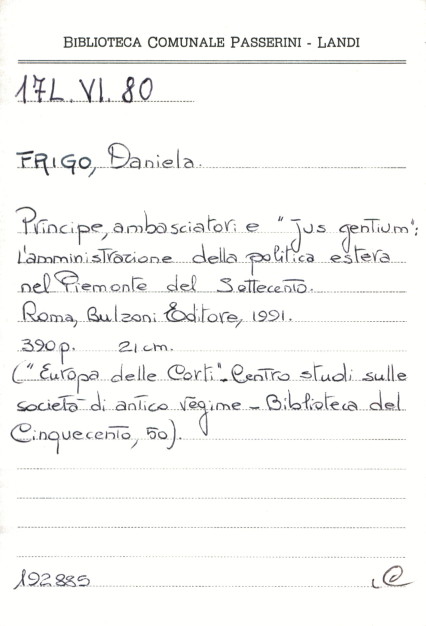 BIBLIOTECA COMUNALE PASSERINI - LANDI
17L.VI.80
FRIGO, Daniela.
Principe, ambasciatori e "Jus gentium":
l'amministrazione della politica estera
nel Piemonte del Settecento.
Roma, Bulzoni Editore, 1991.
390p. 21cm.
("Europa delle Corti". Centro studi sulle
società di antico regime - Biblioteca del
Cinquecento, 50).
192885